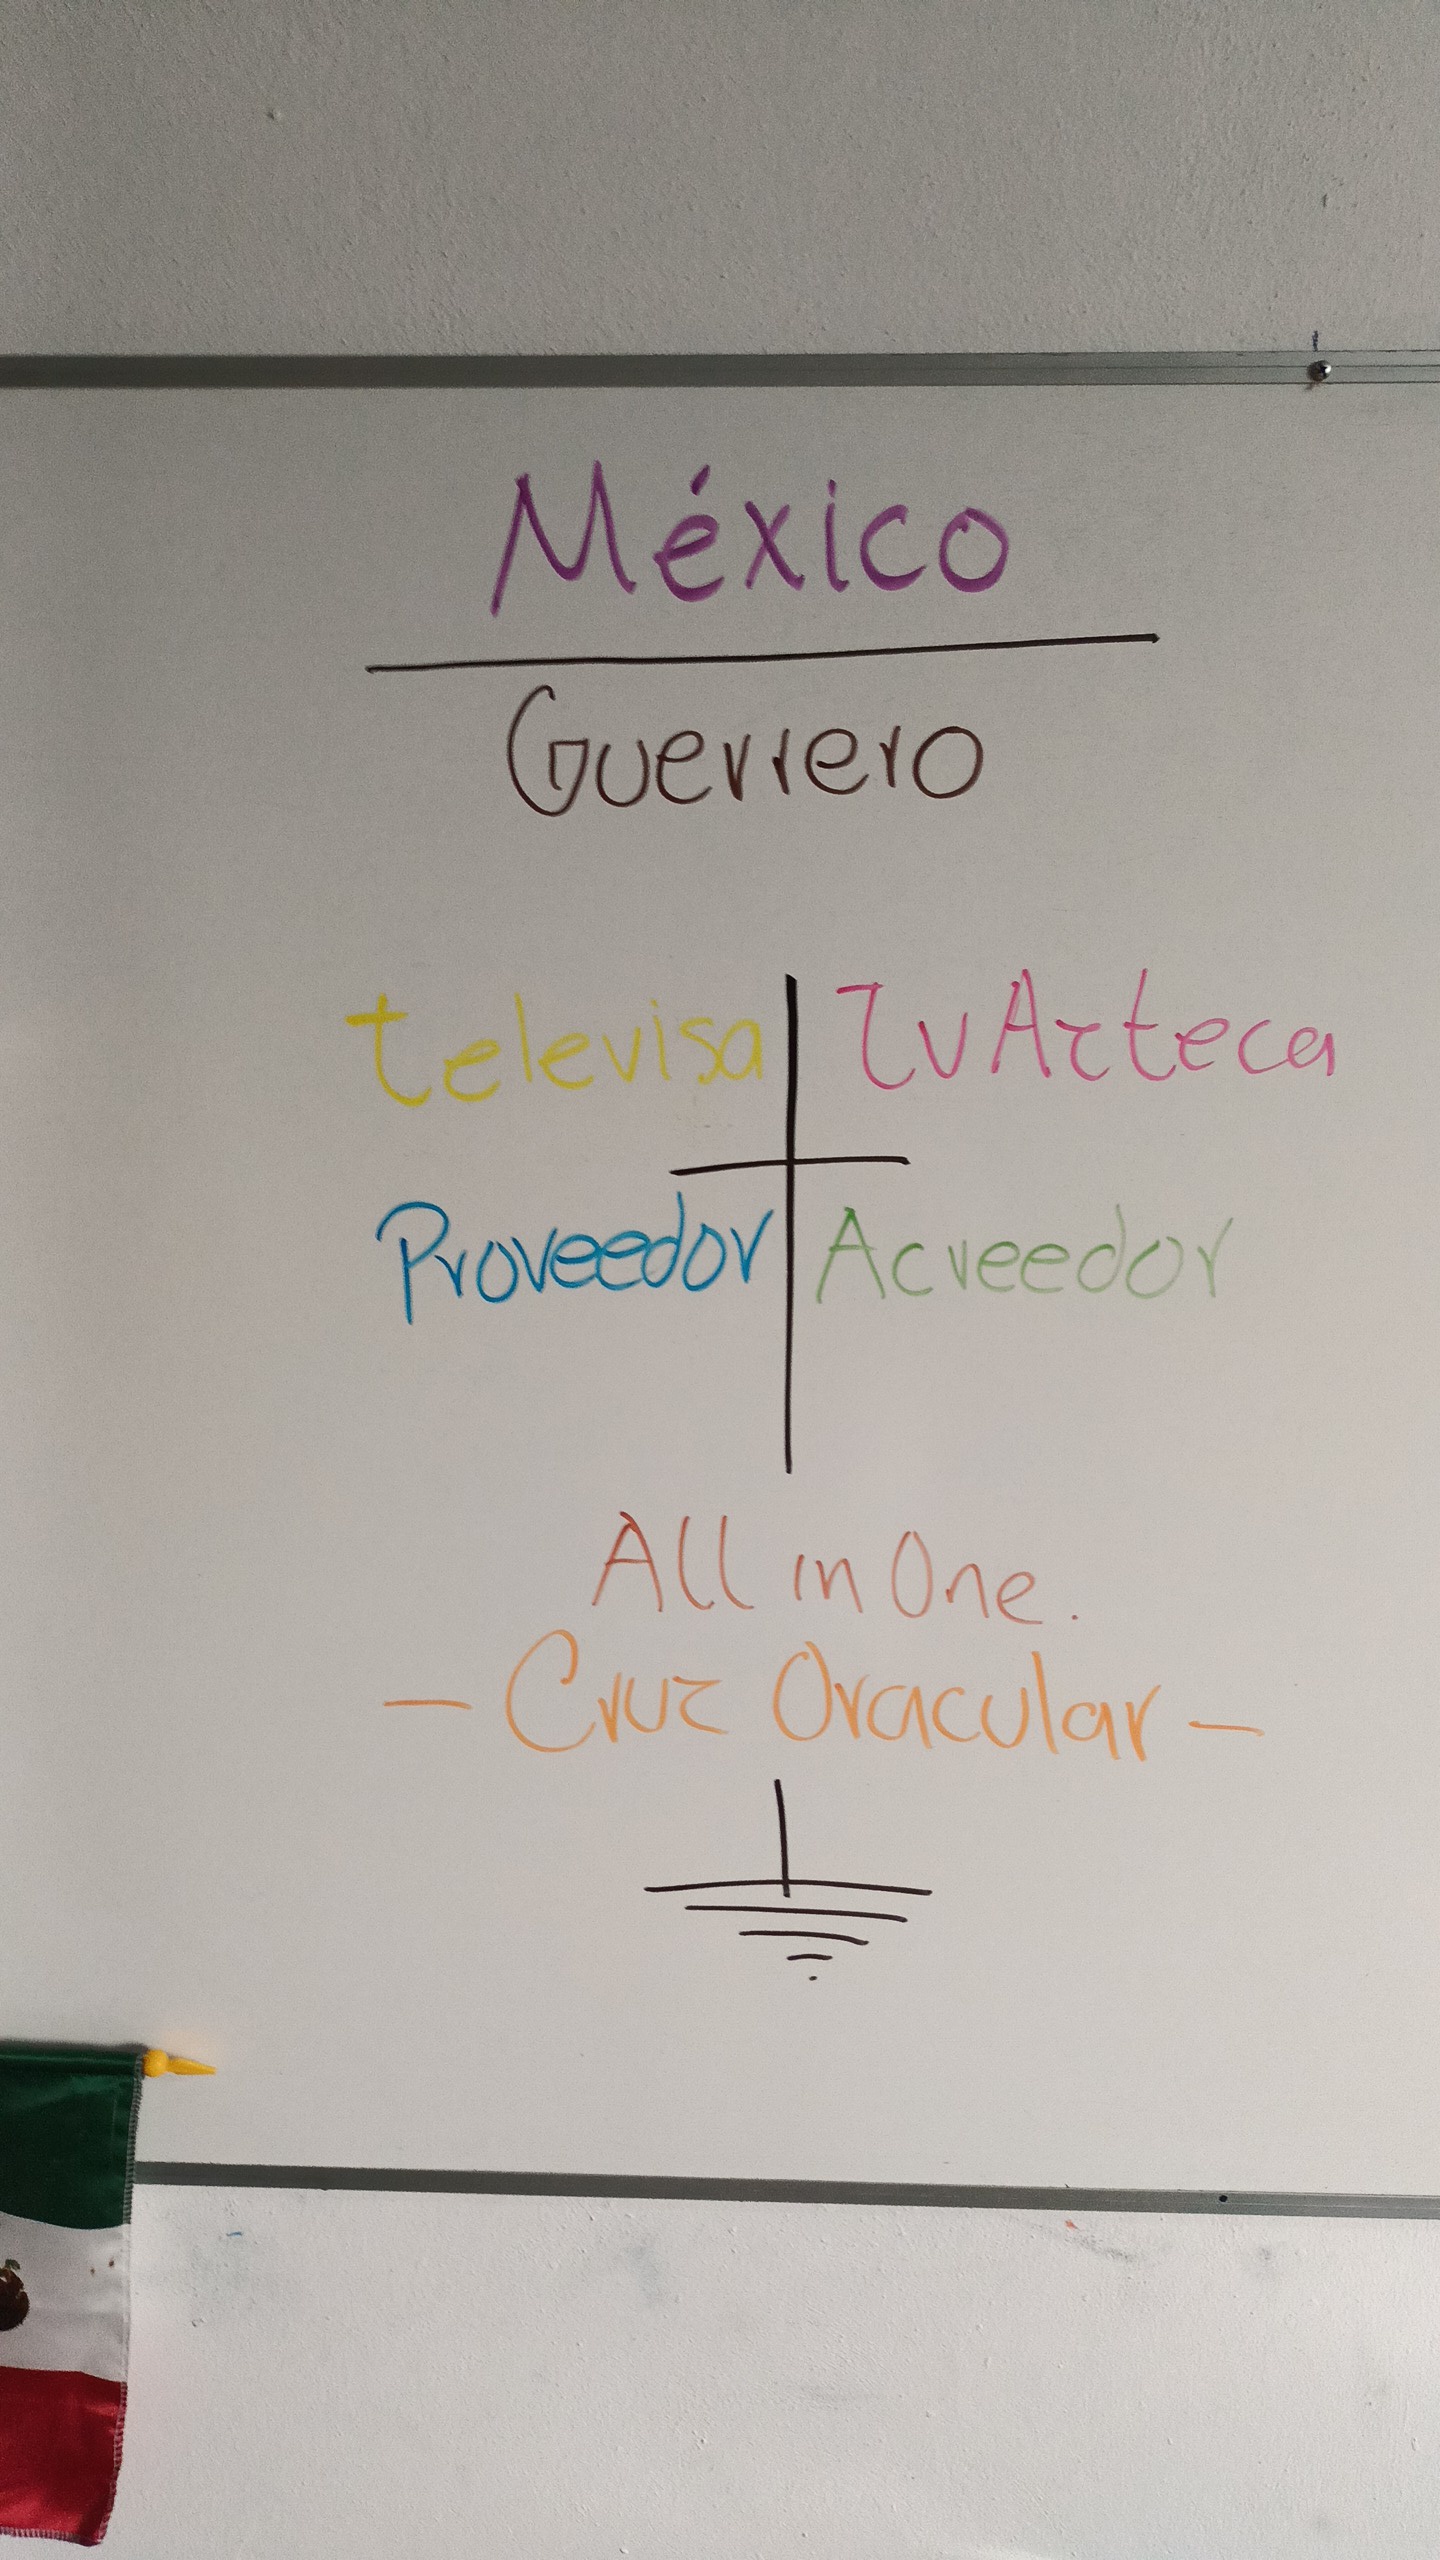 México
Guerrero
televisa TvAzteca
Proveedor Acreedor
All in One.
- Cruz Oracular -